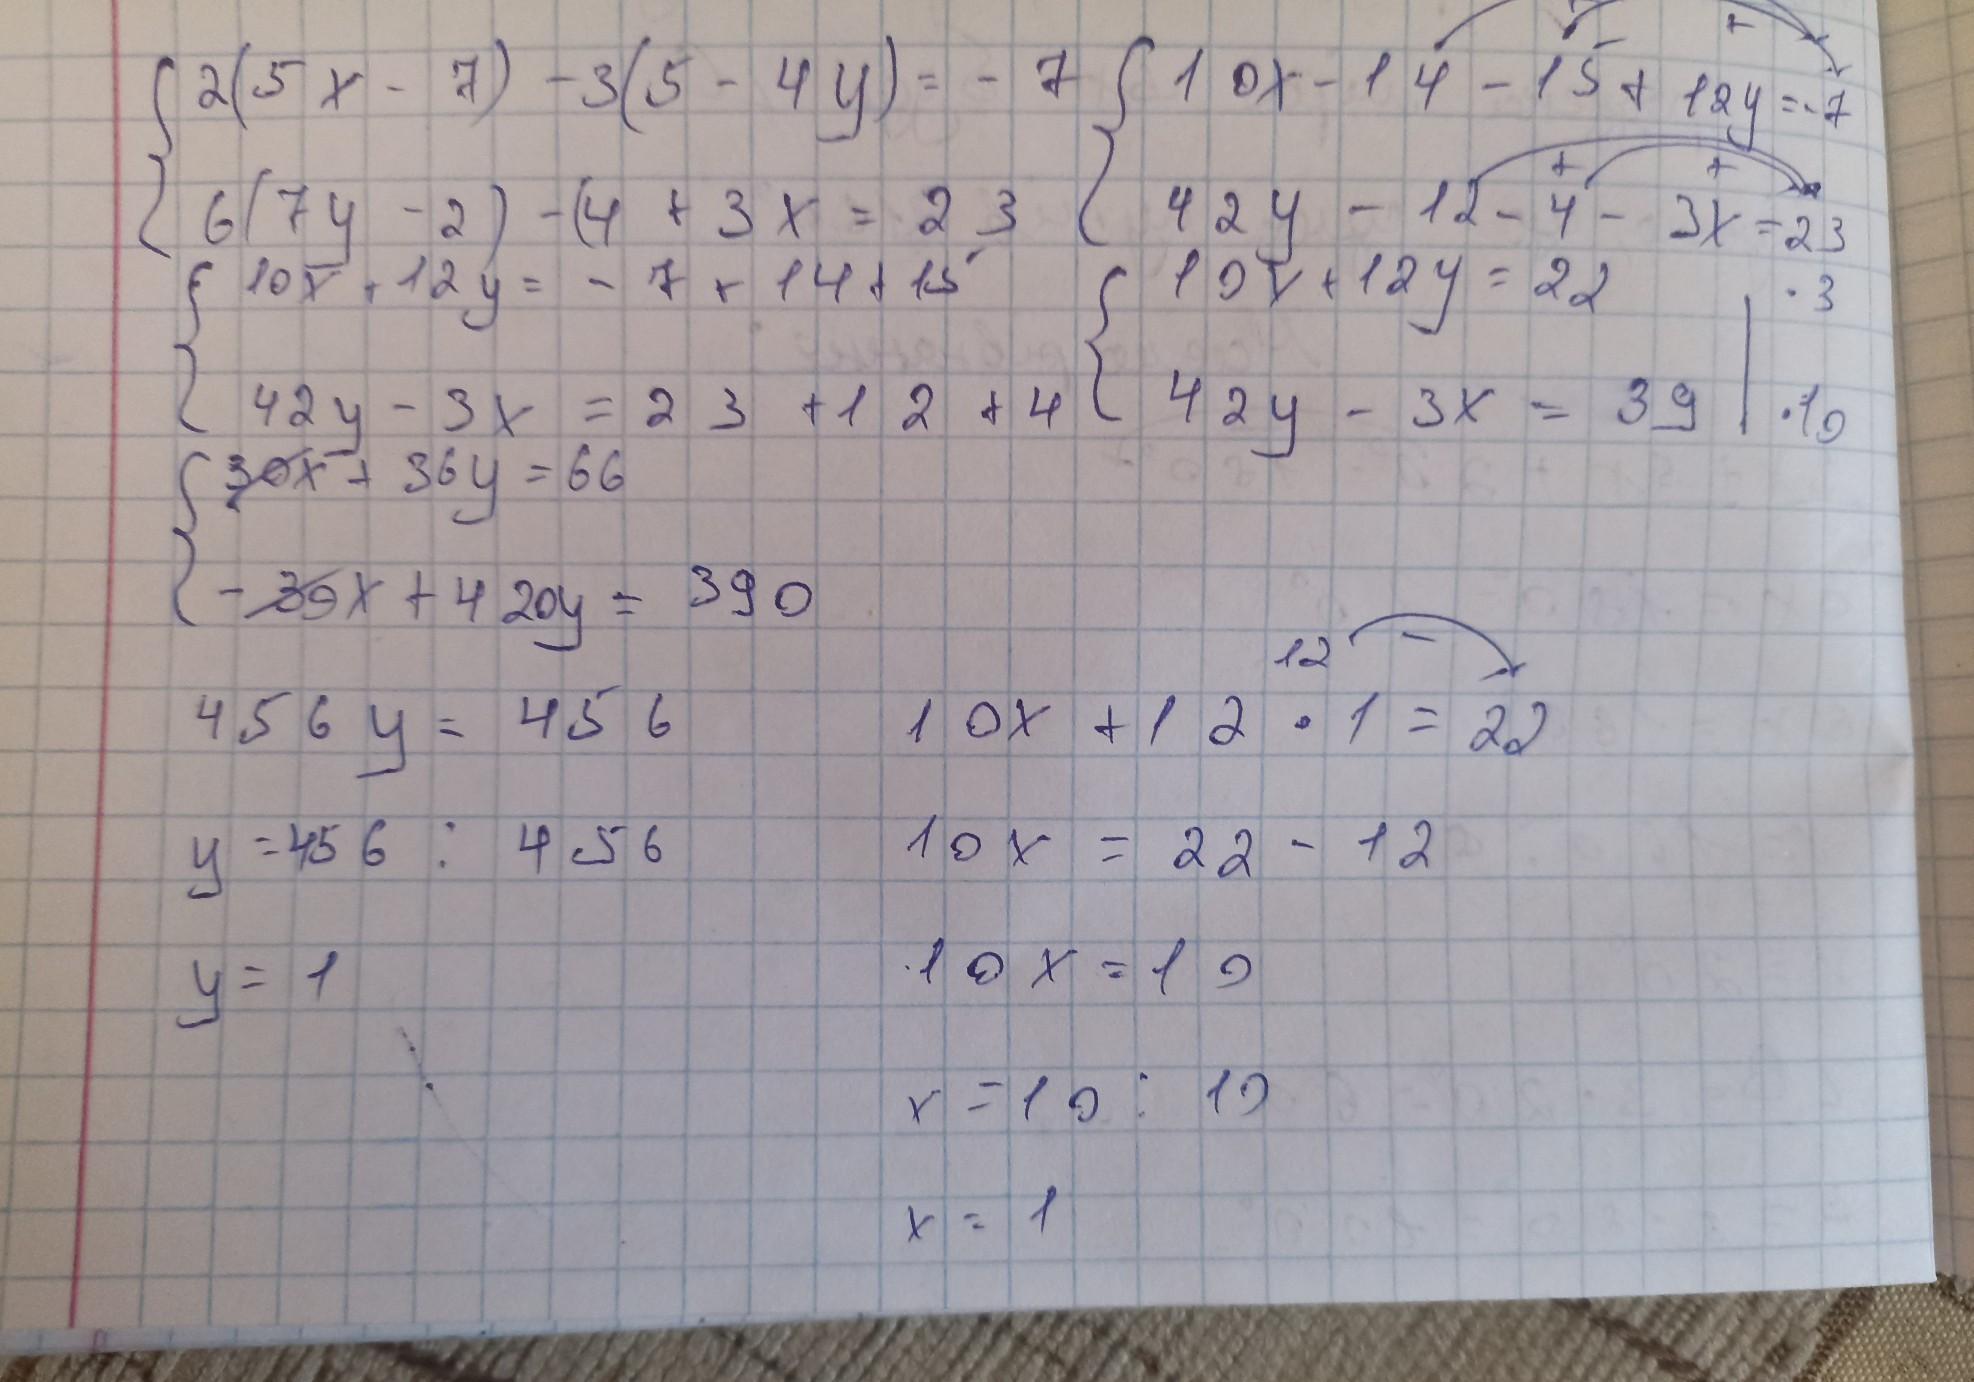 2(5x - 7) - 3(5 - 4y) = - 7
6(7y - 2) - (4 + 3x = 23
10x - 14 - 15 + 12y = -7
42y - 12 - 4 - 3x = 23
10x + 12y = - 7 + 14 + 15
42y - 3x = 23 + 12 + 4
10x + 12y = 22 | ·3
42y - 3x = 39 | ·10
30x + 36y = 66
-30x + 420y = 390
456y = 456
y = 456 : 456
y = 1
12 -
10x + 12 · 1 = 22
10x = 22 - 12
10x = 10
x = 10 : 10
x = 1